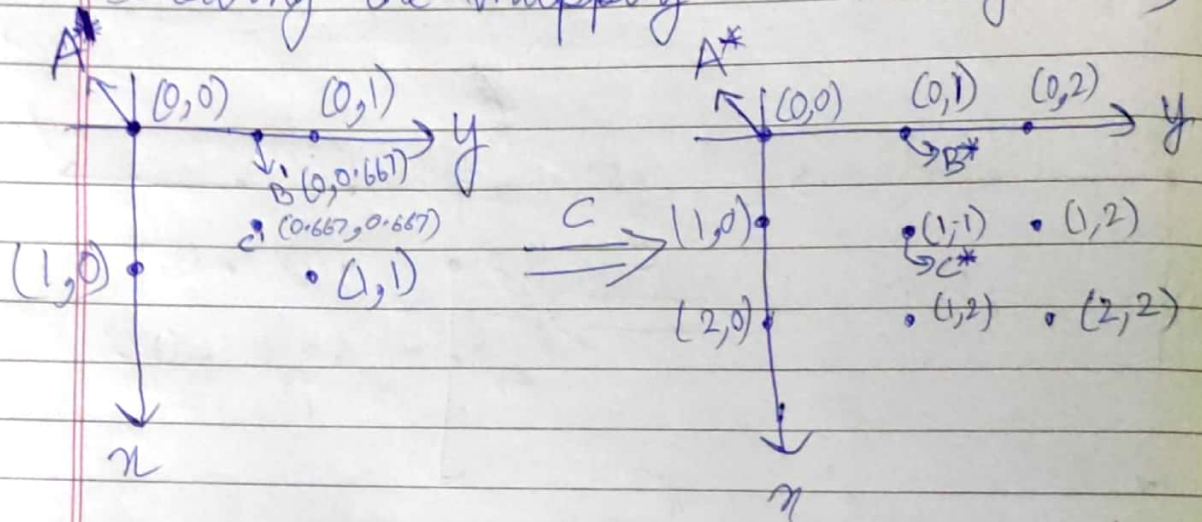 A* (0,0) (0,1) y
B' (0,0.667)
C' (0.667,0.667)
(1,0) (1,1)
x
C
A* (0,0) (0,1) (0,2) y
B*
(1,0) (1,1) (1,2)
C*
(2,0) (1,2) (2,2)
x